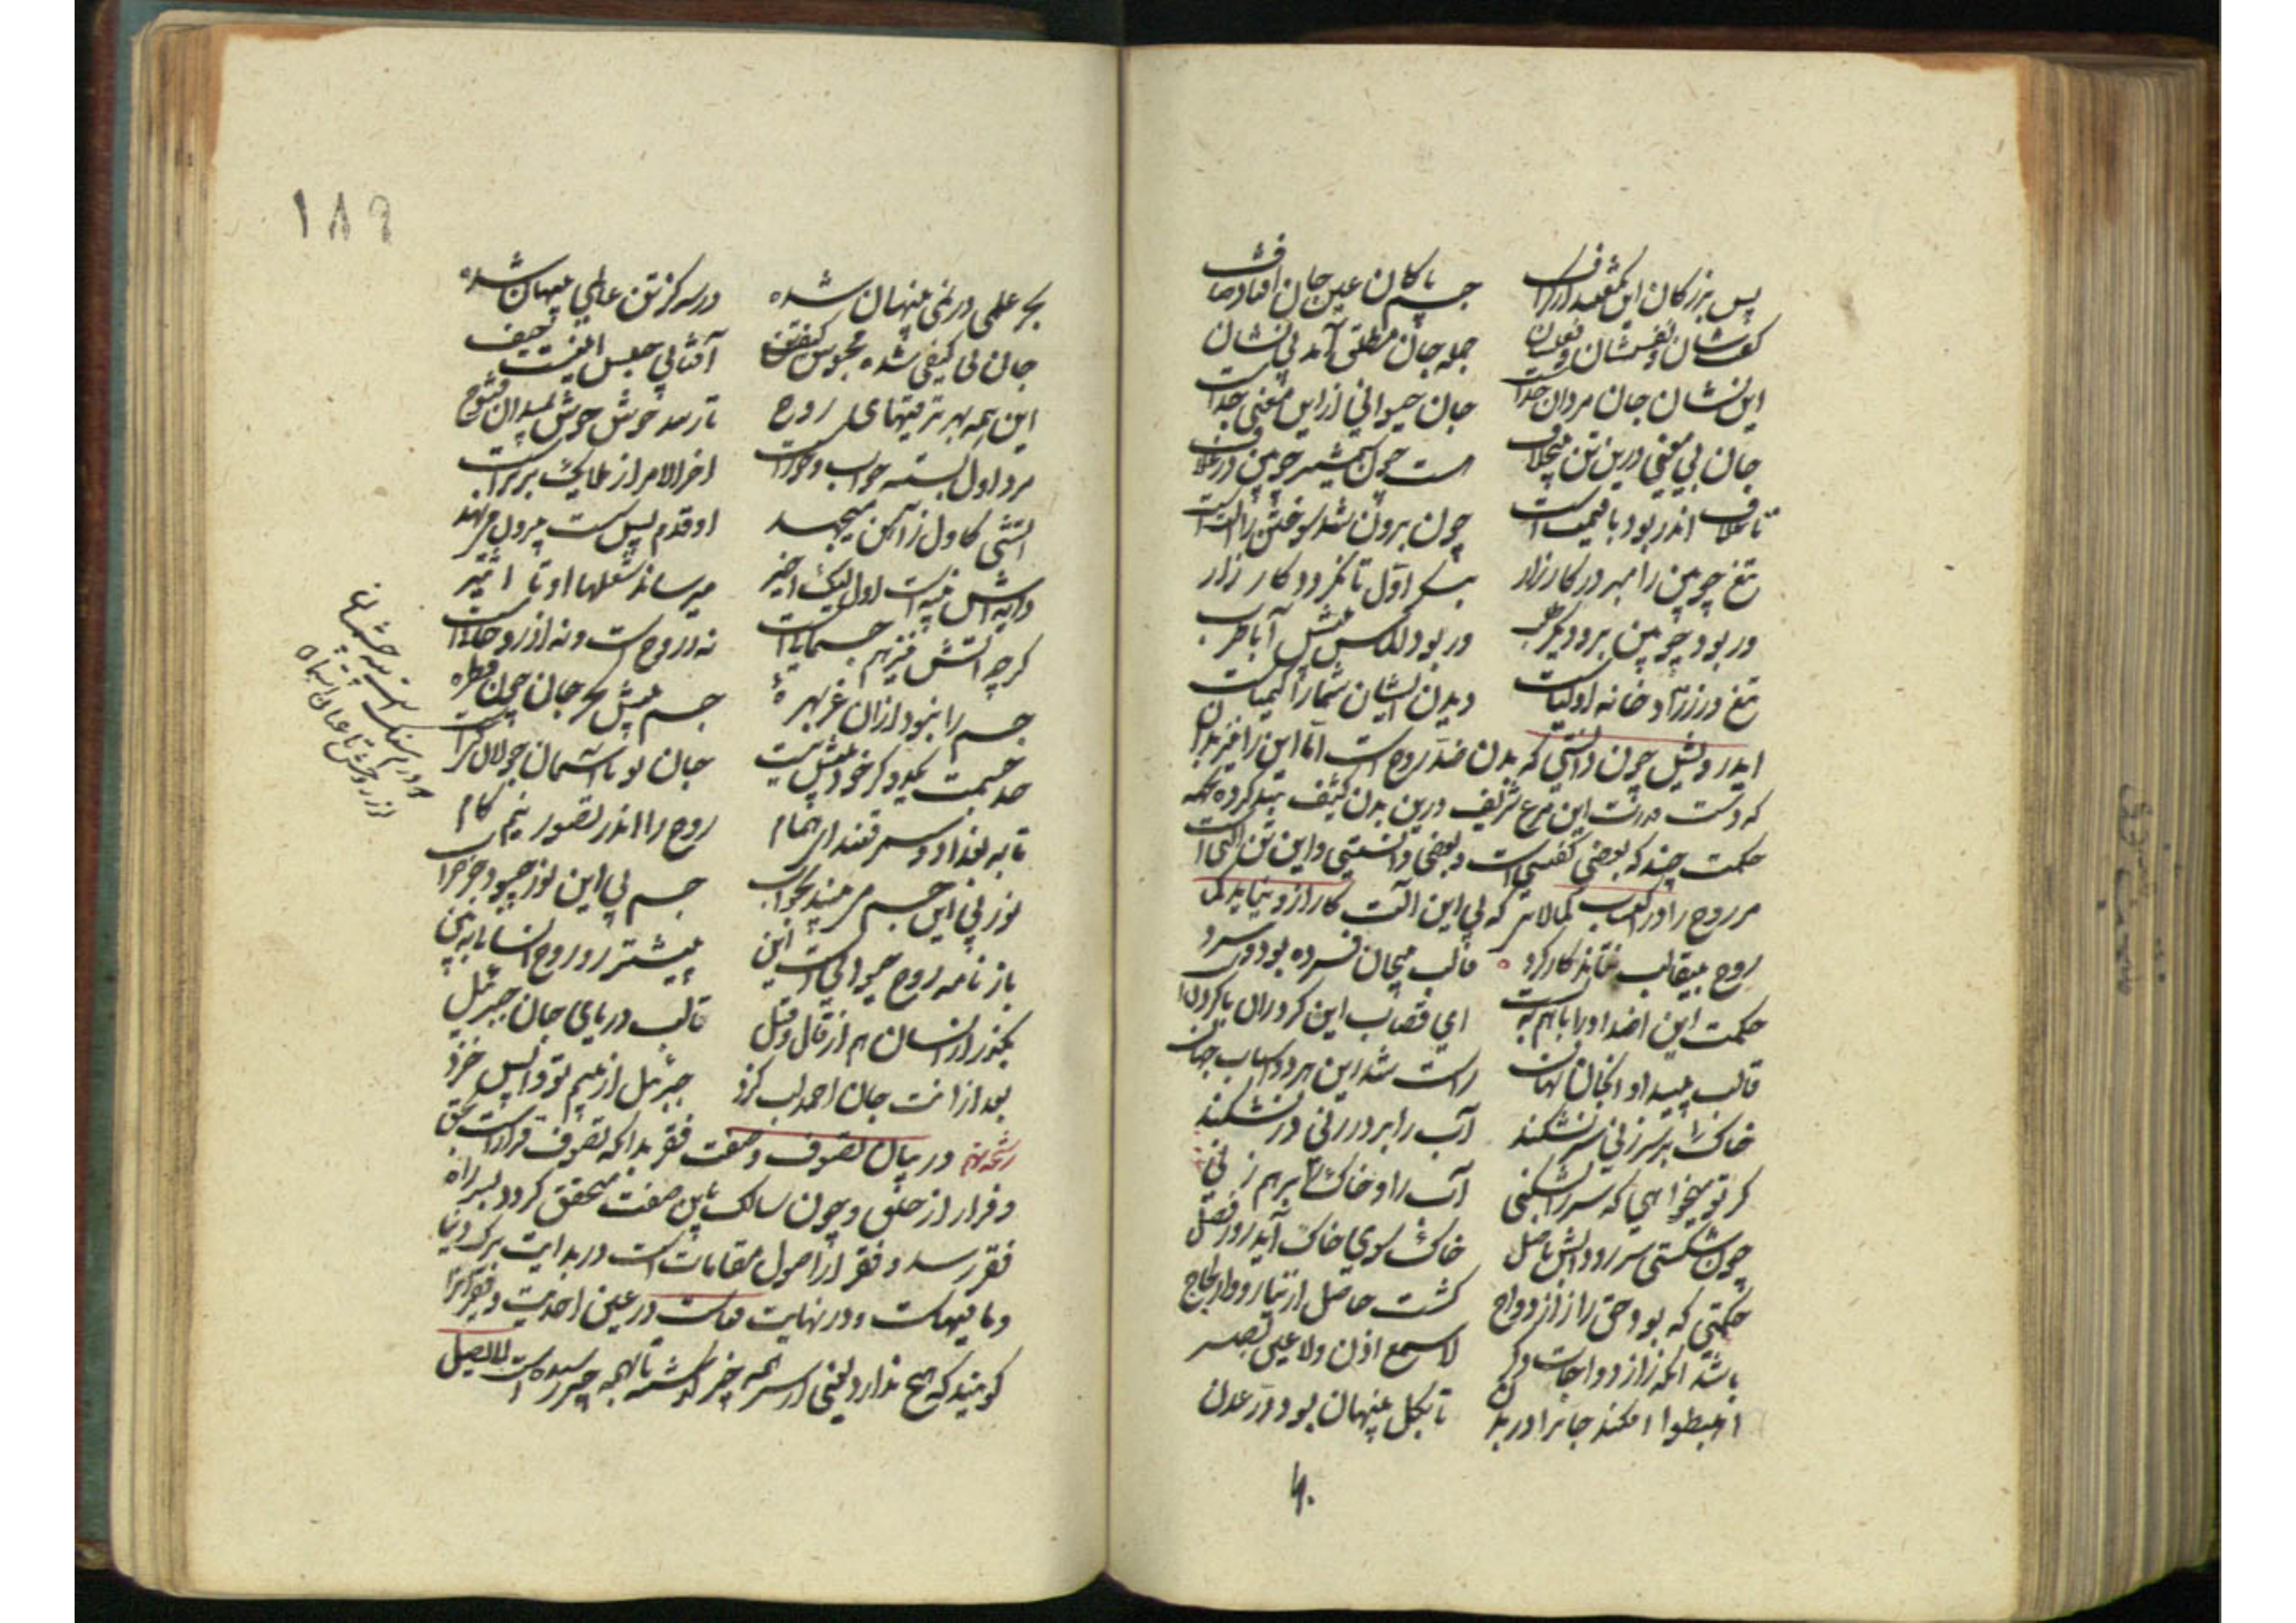 پس بزرگان این نگفتند از گزاف جسم پاکان عین جان افتاد صاف
گفتشان و نفسشان و نقششان جمله جان مطلق آمد بی نشان
این نشان جان مردان خداست جان حیوانی ازاین معنی جداست
جان بی معنی درین تن بیخلاف هست چون شمشیر چوبین در غلاف
تا غلاف اندر بود با قیمت است چون برون شد سوختن را الت است
تیغ چوبین را مبر در کارزار بنکر اول تا نکردد کار زار
ور بود چوبین برو دیکر طلب ور بود الماس پیش آ با طرب
تیغ در زرادخانه اولیاست دیدن ایشان شما را کیمیاست
ایدرویش چون دانستی که بدن ضد روح است اما این را نیز بدان
که دست قدرت این مرغ شریف درین بدن کثیف قید کرده بجهه
حکمت چند که بعضی کفتیم است و بعضی دانستنی و این تن التی است
مر روح را در اکتساب کمالات که بی این الت کار ازو نیاید کی
روح بیقالب نتاند کار کرد قالب بیجان فسرده بود و سرد
حکمت این اضداد را باهم ببست ای قصاب این کردران با کردنست
قالب پیدا و آنجان نهان راست شد این هر دو اسباب جهان
خاک را بر سر زنی سر نشکند آب را بر در زنی در نشکند
کر تو میخواهی که سر را بشکنی آب را و خاک را برهم زنی
چون شکستی سر رود آبش باصل خاک سوی خاک آید روز فصل
حکمتی که بود حق را ز ازدواج کشت حاصل از نیاز و از لجاج
باشد انکه ز ازدواجات دکر لا سمع اذن ولا عین بصر
اهبطوا افکند جانرا در بدن تا بکل پنهان بود در عدن
۱۸۹
بحر علمی در نمی پنهان شده در سه کز تن عالمی پنهان شده
جان بی کیفی شده محبوس کیف آفتابی حبس اینست حیف
این همه بهر ترقیهای روح تا رسد خوش خوش بمیدان فتوح
مرد اول بسته خواب و خورست اخر الامر از ملایک برترست
اتشی کاول ز آهن میجهد او قدم بس سست بیرون مینهد
دایه اش پنبه است اول لیک اخیر میرساند شعلها او تا اثیر
کرچه اتش نیز هم جسمانیست نه ز روحست و نه از روحانیست
جسم را نبود ازان عز بهره جسم پیش بحر جان چون قطره
حد جسمت یکدو کز خود بیش نیست جان تو تا آسمان جولان کنیست
تا به بغداد و سمرقند ای همام روح را اندر تصور نیم کام
نور بی این جسم میبیند بخواب جسم بی این نور چبود جز خراب
باز نامه روح حیوانی است این پیشتر رو روح انسانی ببین
بکذر از انسان هم از قال و قیل تا لب دریای جان جبرئیل
بعد ازانت جان احمد لب کزد جبرئیل از بیم تو واپس خزد
در بیان تصوف و صفت فقر بدانکه تصوف قرارست بحق
و فرار از خلق و چون سالک باین صفت متحقق کردد بسر راه
فقر رسد و فقر از اصول مقامات است در بدایت ترک دنیا
و ما فیهاست و در نهایت فناست در عین احدیت و فقیر آنرا
کویند که هیچ ندارد یعنی از سر همه چیز کذشته تا بهمه چیز رسیده است